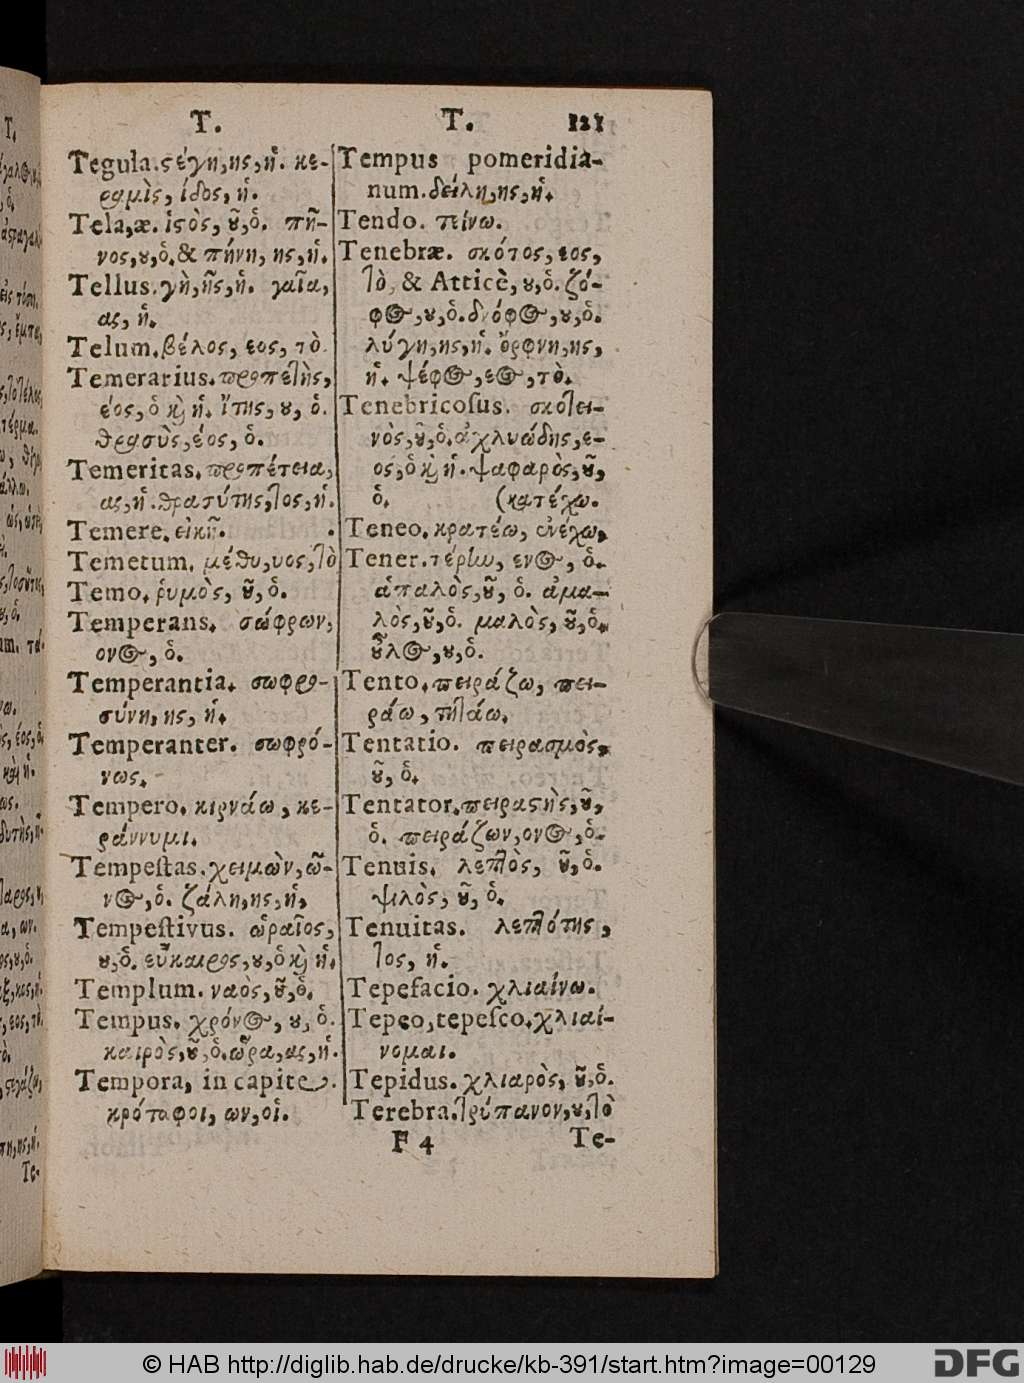 T.
Tegula. ςέγη, ης, ἡ. κε-
ραμὶς, ίδος, ἡ.
Tela, æ. ἱςὸς, ȣ͂, ὁ. πῆ-
νος, ȣ, ὁ. & πήνη, ης, ἡ.
Tellus. γὴ, ῆς, ἡ. γαῖα,
ας, ἡ.
Telum. βέλος, εος, τὸ.
Temerarius. προπετὴς,
έος, ὁ ϗ ἡ. ἴτης, ȣ, ὁ.
θρασὺς, έος, ὁ.
Temeritas. προπέτεια,
ας, ἡ. θρασύτης, τος, ἡ.
Temere. εἰκῆ.
Temetum. μέθυ, υος, τὸ
Temo. ῥυμὸς, ȣ͂, ὁ.
Temperans. σώφρων,
ονος, ὁ.
Temperantia. σωφρο-
σύνη, ης, ἡ.
Temperanter. σωφρό-
νως.
Tempero. κιρνάω, κε-
ράννυμι.
Tempeſtas. χειμὼν, ῶ-
νος, ὁ. ζάλη, ης, ἡ,
Tempeſtivus. ὡραῖος,
ȣ, ὁ. εὔκαιρος, ȣ, ὁ ϗ ἡ.
Templum. ναὸς, ȣ͂, ὁ.
Tempus. χρόνος, ȣ, ὁ.
καιρὸς, ȣ͂, ὁ. ὥρα, ας, ἡ.
Tempora, in capite.
κρόταφοι, ων, οἱ.
T. 121
Tempus pomeridia-
num. δείλη, ης, ἡ.
Tendo. τείνω.
Tenebræ. σκότος, εος,
τὸ, & Atticè, ȣ, ὁ. ζό-
φος, ȣ, ὁ. δνόφος, ȣ, ὁ.
λύγη, ης, ἡ. ὄρφνη, ης,
ἡ. ψέφος, εος, τὸ.
Tenebricoſus. σκοτει-
νὸς, ȣ͂, ὁ. ἀχλυώδης, ε-
ος, ὁ ϗ ἡ. ψαφαρὸς, ȣ͂,
ὁ. (κατέχω.
Teneo. κρατέω, ἀνέχω,
Tener. τέρην, ενος, ὁ.
ἁπαλὸς, ȣ͂, ὁ. ἀμα-
λὸς, ȣ͂, ὁ. μαλὸς, ȣ͂, ὁ.
ȣ͂̓λος, ȣ, ὁ.
Tento. πειράζω, πει-
ράω, πιτάω.
Tentatio. πειρασμὸς,
ȣ͂, ὁ.
Tentator. πειραςὴς, ȣ͂,
ὁ. πειράζων, ονος, ὁ.
Tenuis. λεπτὸς, ȣ͂, ὁ.
ψιλὸς, ȣ͂, ὁ.
Tenuitas. λεπτότης,
τος, ἡ.
Tepefacio. χλιαίνω.
Tepeo, tepeſco. χλιαί-
νομαι.
Tepidus. χλιαρὸς, ȣ͂, ὁ.
Terebra. τρύπανον, ȣ, τὸ
F 4 Te-
© HAB http://diglib.hab.de/drucke/kb-391/start.htm?image=00129
DFG